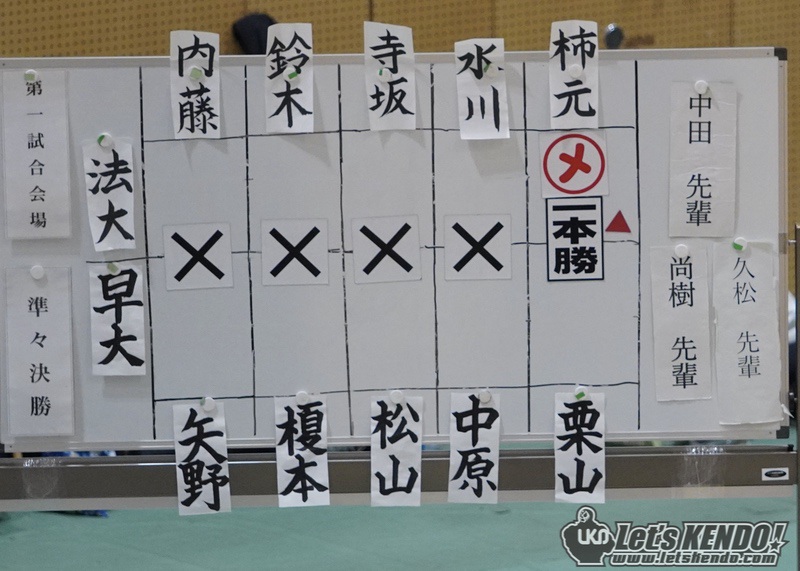 第一試合会場
準々決勝
法大
早大
内藤
鈴木
寺坂
水川
柿元
メ
一本勝
矢野
榎本
松山
中原
栗山
中田 先輩
尚樹 先輩
久松 先輩
LKD Let's KENDO!
www.letskendo.com